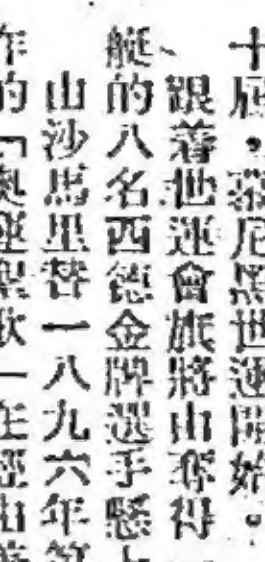 十屆，慕尼黑世運開始。
跟着世運會旗將由奪得
艇的八名西德金牌選手懸上
山沙馬里替一八九六年第
作的「奧運